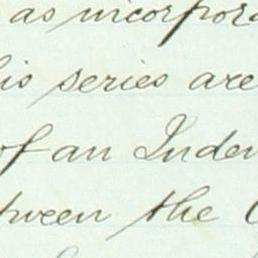 as incorpora
his series are
of an Inden
tween the